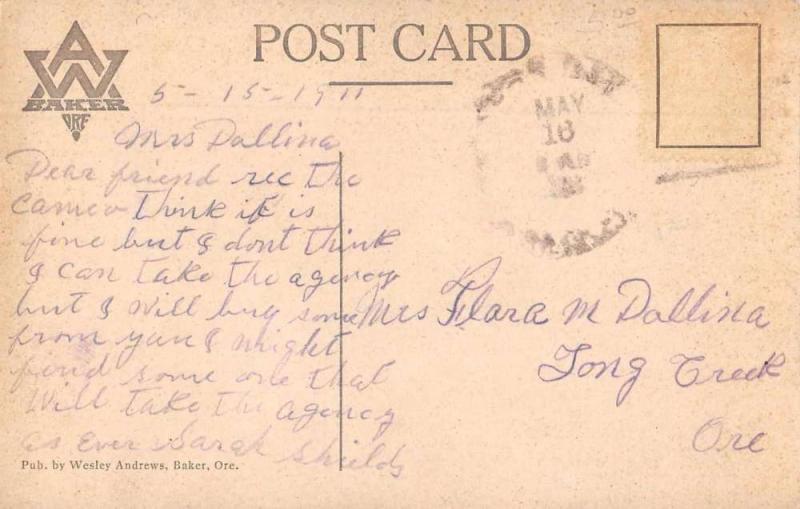 POST CARD
AW
BAKER
ORE
5-15-1911
MAY
16
Mrs Dallina
Dear friend rec the
Cameo think it is
fine but I dont think
I can take the agency
but I will buy some
from you I might
find some one that
Will take the agency
as ever Sarah Shields
Mrs Flara M Dallina
Long Creek
Ore
Pub. by Wesley Andrews, Baker, Ore.